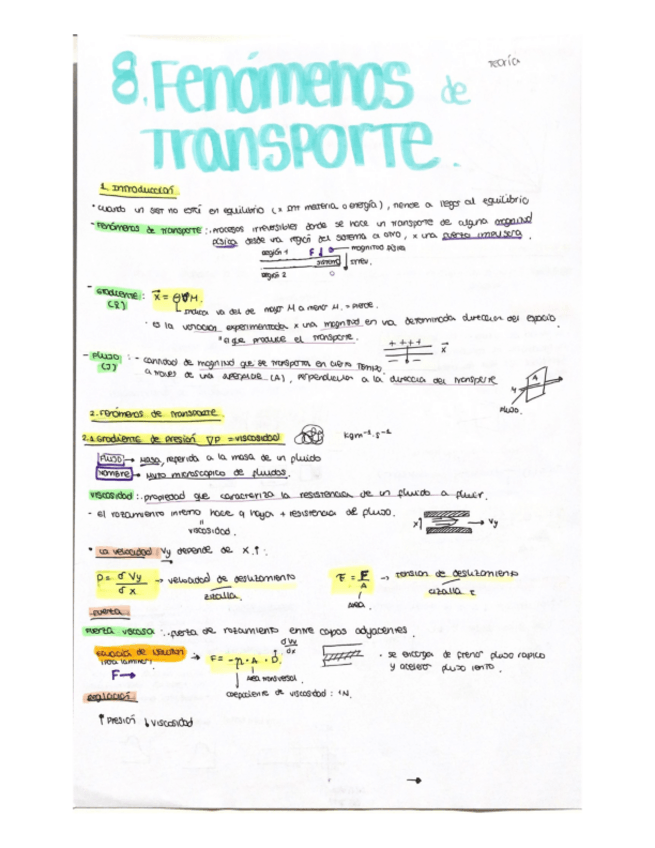 Teoría
8. Fenómenos de
Transporte.
1. Introducción.
• Cuando un ser no está en equilibrio (x dif materia o energía), tiende a llegar al equilibrio
- Fenómenos de transporte: procesos irreversibles donde se hace un transporte de alguna magnitud
física desde una región del sistema a otro, x una fuerza impulsora.
región 1 F magnitud física
sistema
región 2
- Gradiente: X = ∇M.
indica va del de mayor M a menor M.
• es la variación experimentada x una magnitud en una determinada dirección del espacio.
* a que produce el transporte.
++++
x
- Flujo: - cantidad de magnitud que se transporta en cierto tiempo,
(J) a traves de una superficie (A), perpendicular a la dirección del transporte
A
Flujo.
2. Fenómenos de transporte
2.1 Gradiente de presión ∇P = viscosidad kgm⁻¹·s⁻¹
Flujo → masa, referida a la masa de un fluido
nombre → flujo microscopico de fluidos.
viscosidad: propiedad que caracteriza la resistencia de un fluido a fluir.
- el rozamiento interno hace q haya + resistencia de flujo.
viscosidad.
x → Vy
• La velocidad Vy depende de x.↑:
D = d Vy / d x → velocidad de deslizamiento
cizalla.
τ = F / A → tension de deslizamiento
area. cizalla τ
Fuerza
Fuerza viscosa: fuerza de rozamiento entre capas adyacentes.
Ecuación de Newton → F = -η · A · D. dVy / dx
F→
area transversal.
coeficiente de viscosidad:
• se encarga de frenar flujo rapido
y acelerar flujo lento.
↑ Presión ↓ viscosidad
→